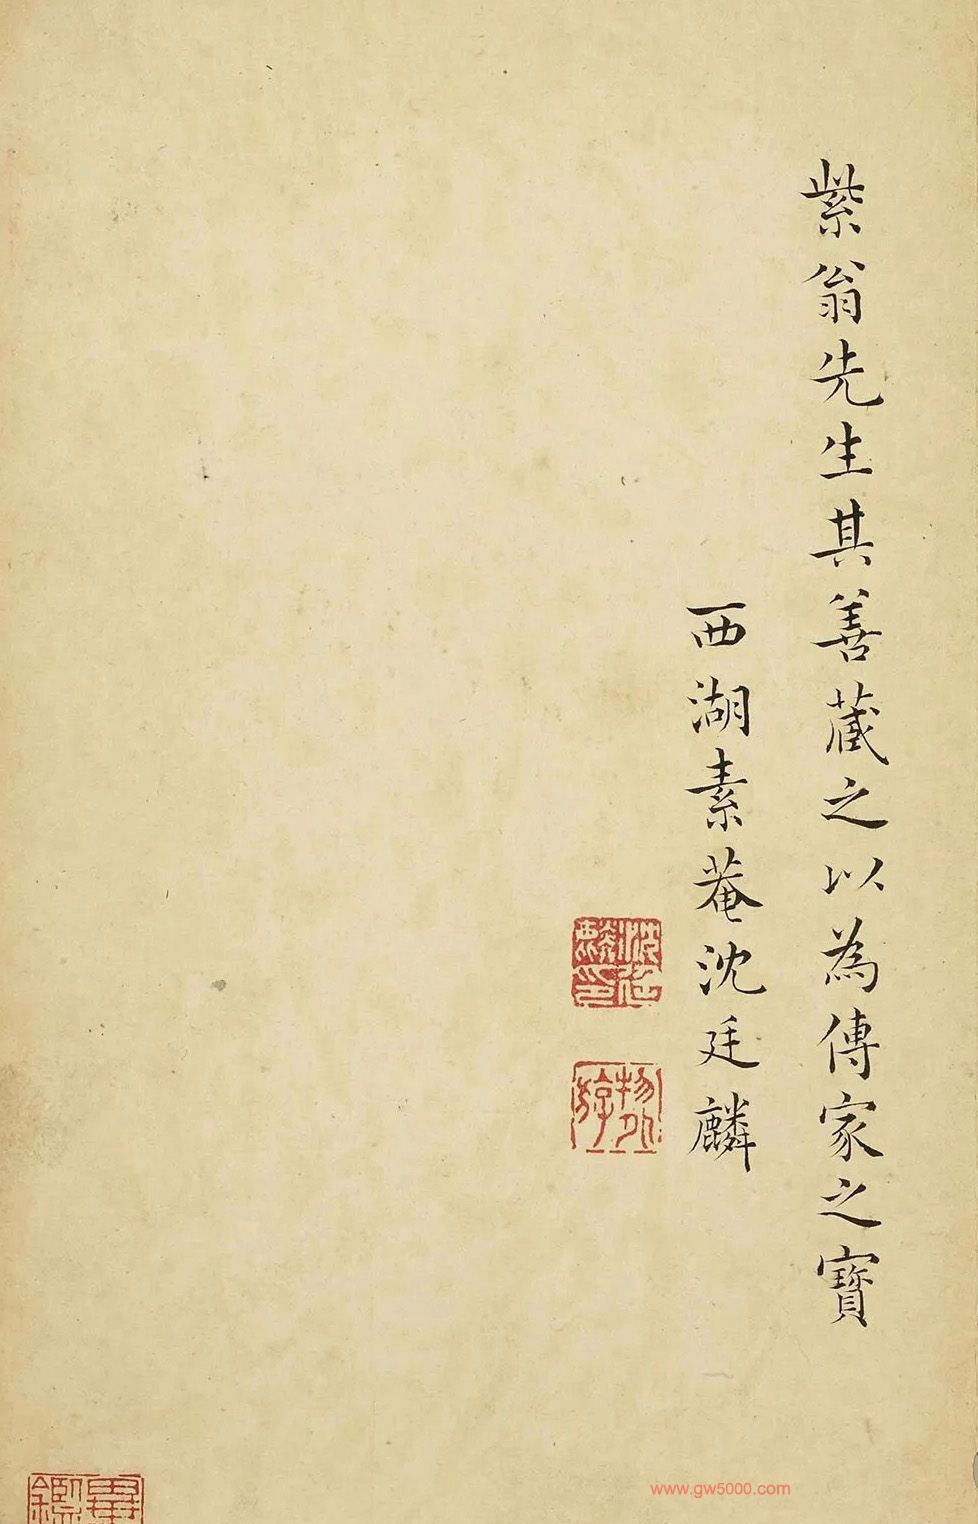 紫翁先生其善藏之以為傳家之寶
西湖素菴沈廷麟
沈廷麟印
www.gw5000.com